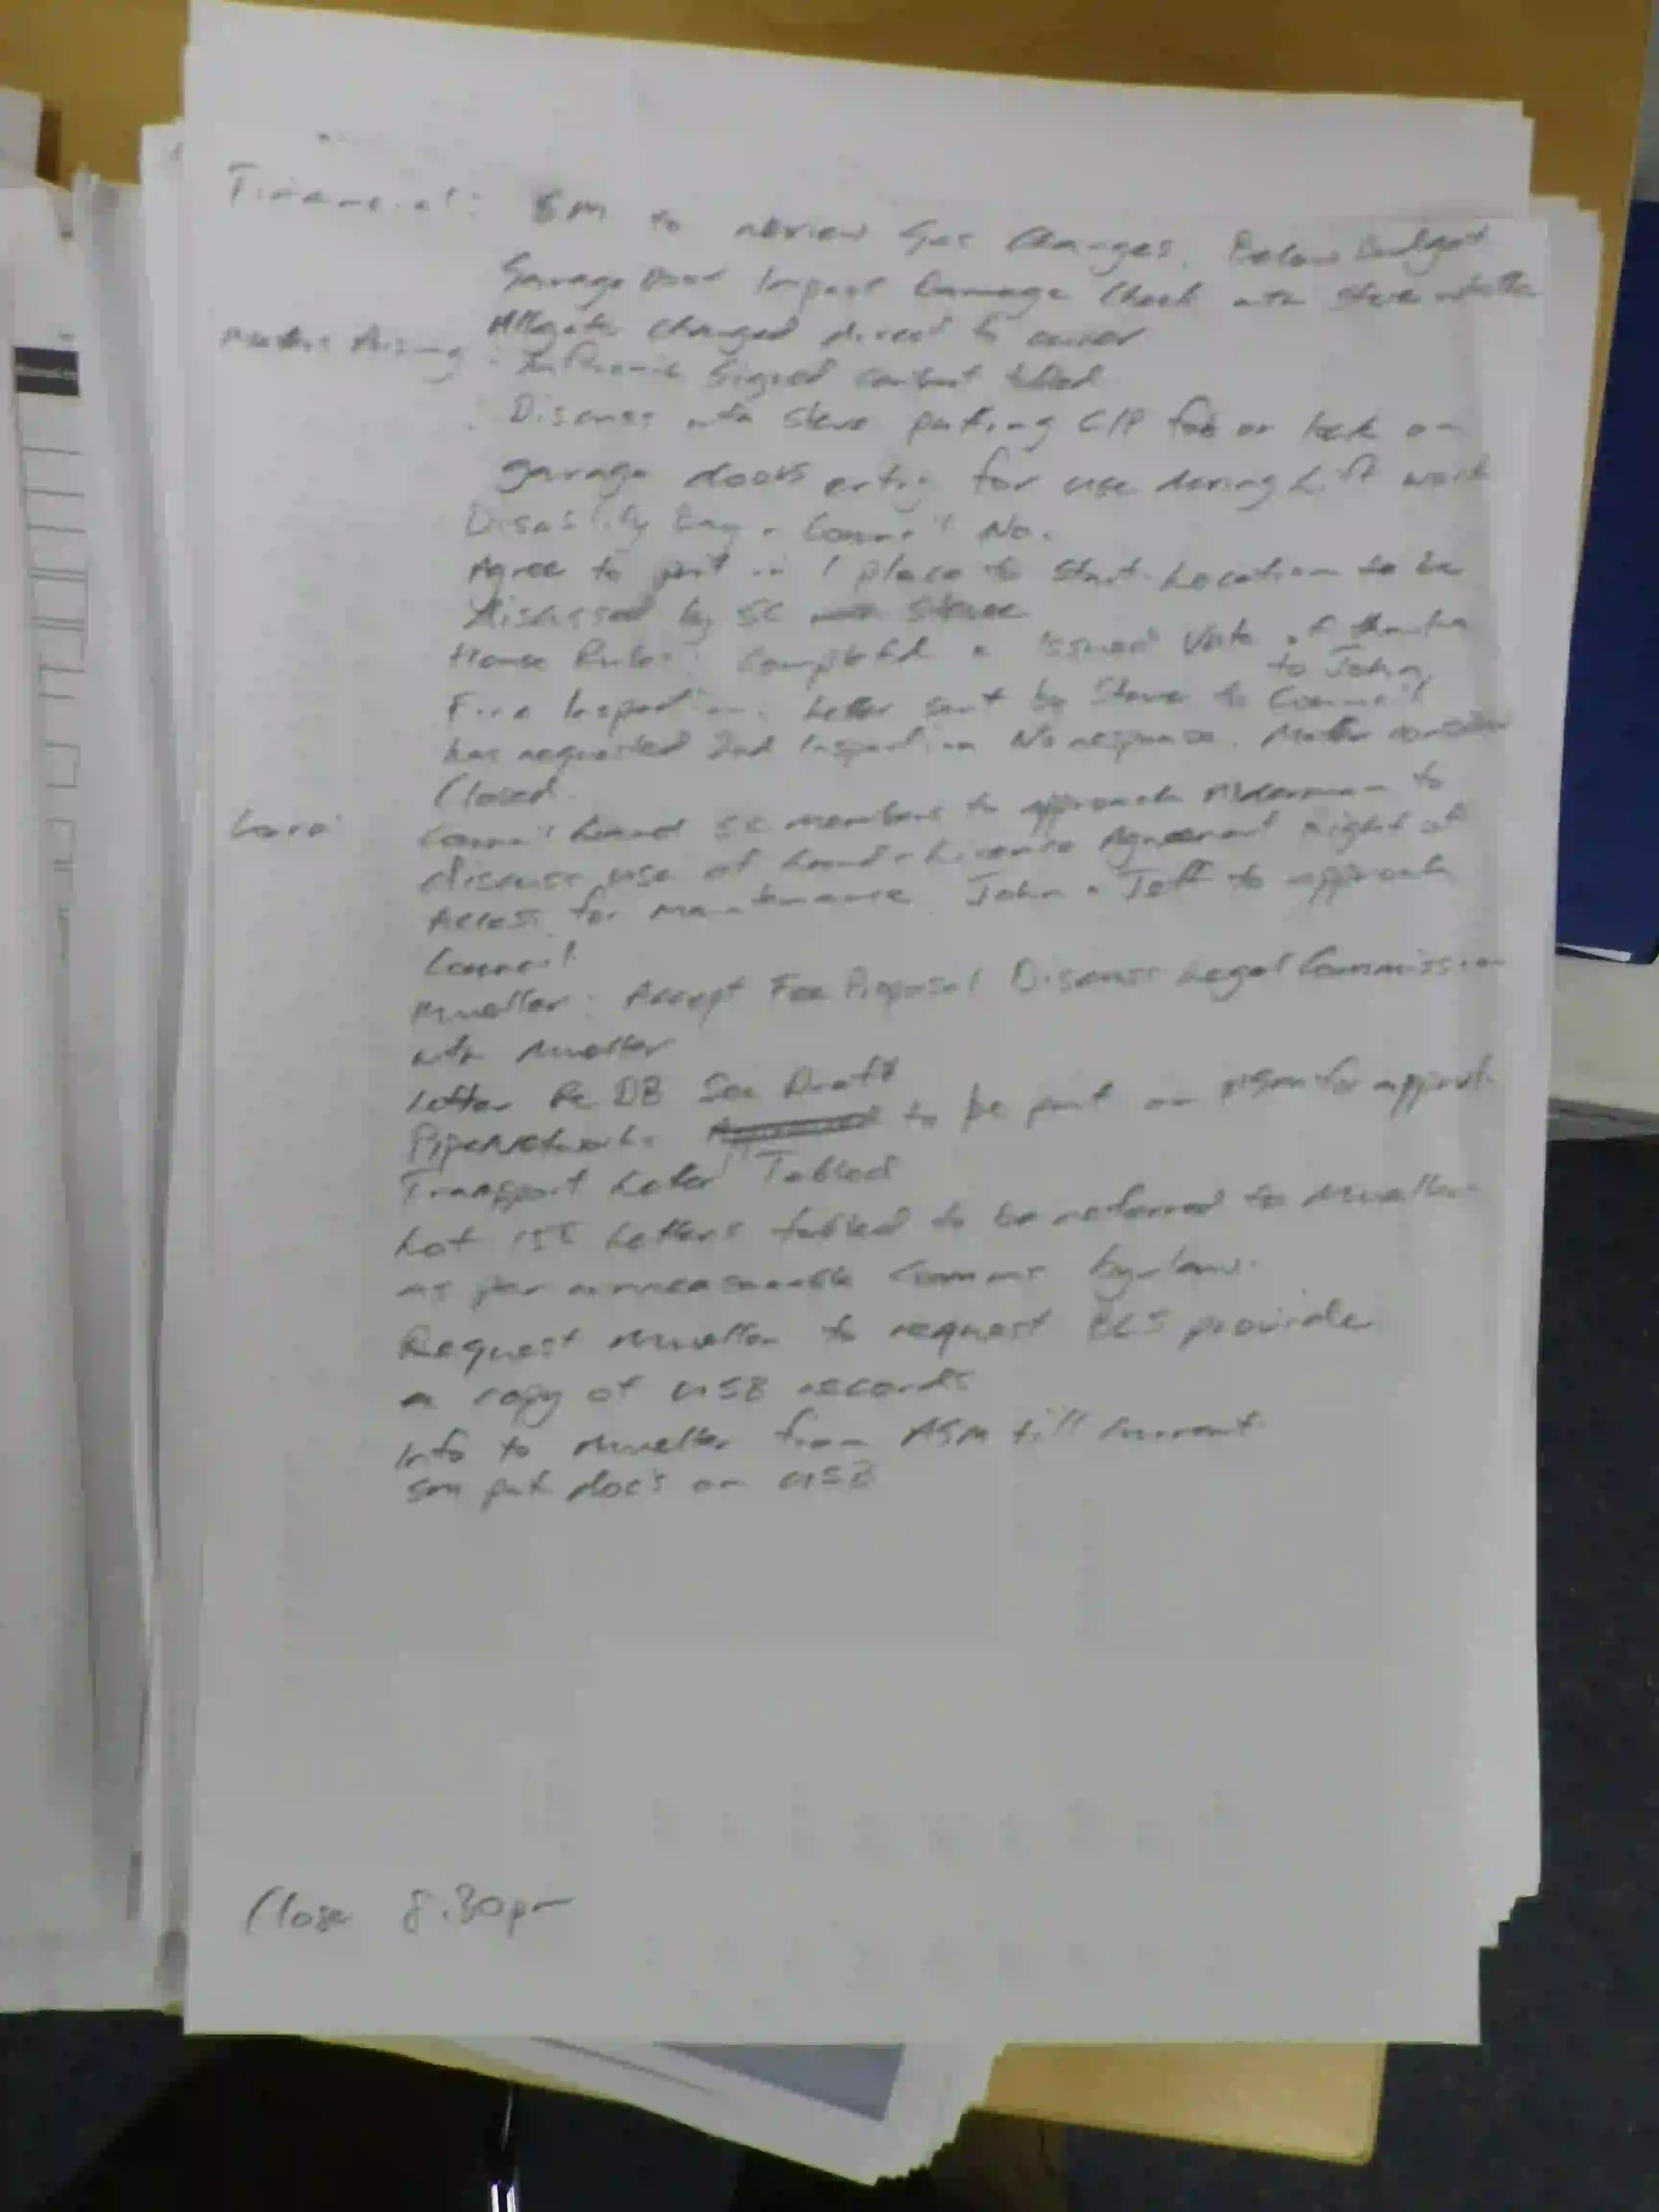 Financial: SM to review Gas Charges. Below Budget
Garage Door Impact Damage Check with Steve whether
Allgate charged direct to owner
Matters Arising: Signed contract tabled
Discuss with Steve putting C/P fob or lock on
garage doors entry for use during Lift work
Disability Bay - Council No.
Agree to put in 1 place to start. Location to be
Discussed by SC Steve
House Rules: Completed + issued Vote of thanks
to John,
Fire Inspection. Letter sent by Steve to Council
has requested 2nd Inspection No response. Matter consider
Closed.
Council Land SC members to approach Alderman to
discuss use of Land + Licence Agreement Right of
Access for maintenance John + Jeff to approach
Council
Mueller: Accept Fee Proposal Discuss Legal Commission
with Mueller
Letter Re DB See Draft
Pipe Network. to be put on for approval
Transport Letter Tabled
Lot Letters tabled to be referred to Mueller
as per unreasonable Comms by-laws.
Request Mueller to request provide
a copy of USB records
Info to Mueller from ASM till current
SM put docs on USB
Close 8.30pm